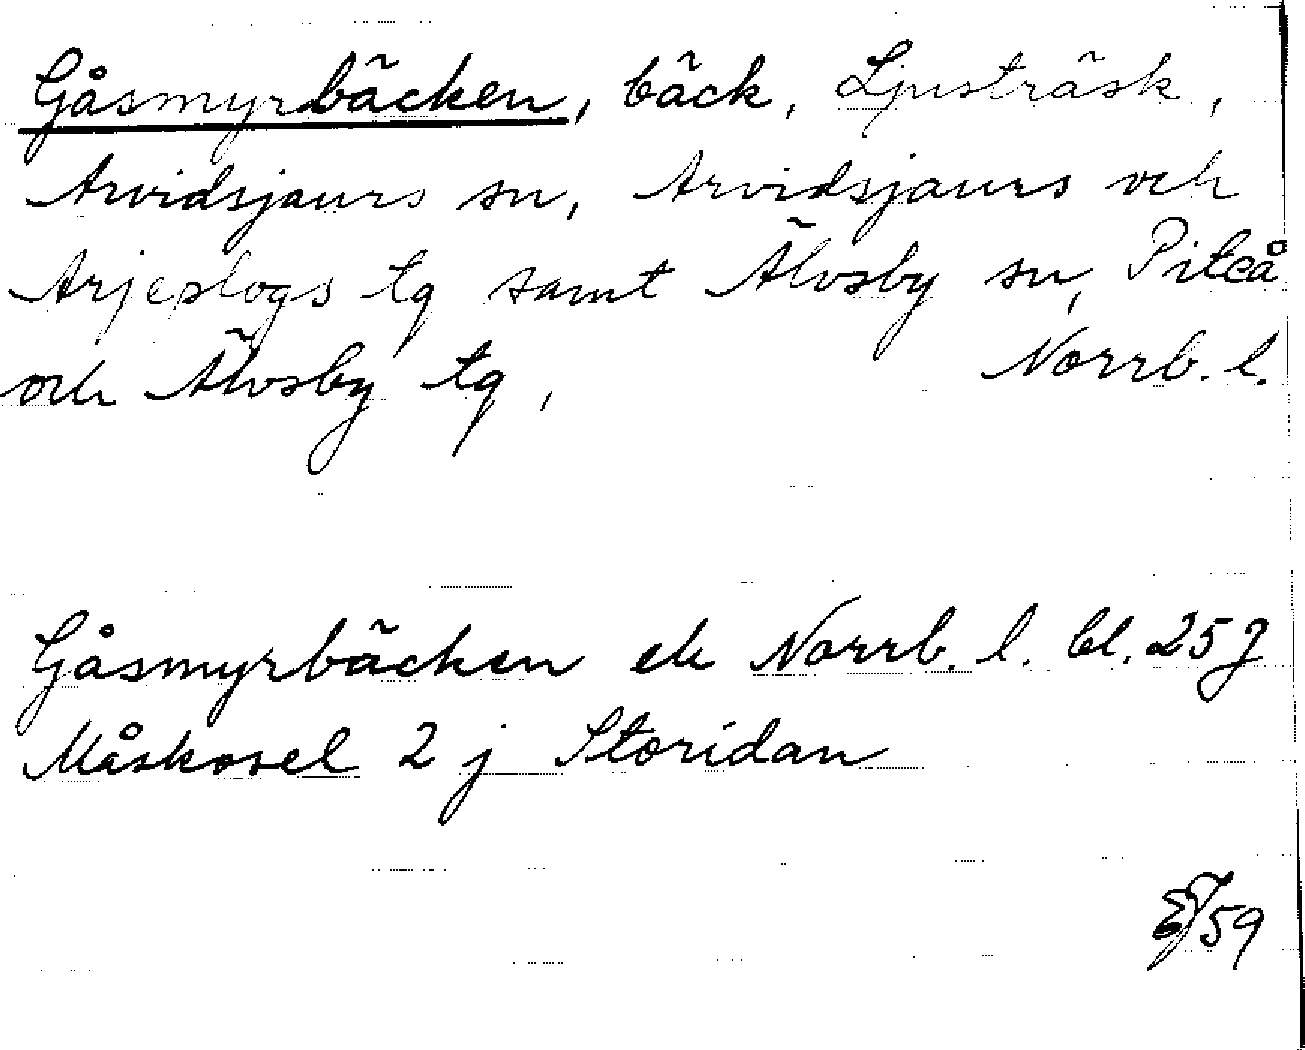 Gåsmyrbäcken, bäck, Ljusträsk,
Arvidsjaurs sn, Arvidsjaurs och
Arjeplogs tg samt Älvsby sn, Piteå
och Älvsby tg, Norrb. l.
Gåsmyrbäcken ek Norrb. l. bl. 25J
Måskosel 2 j Storidan
/59